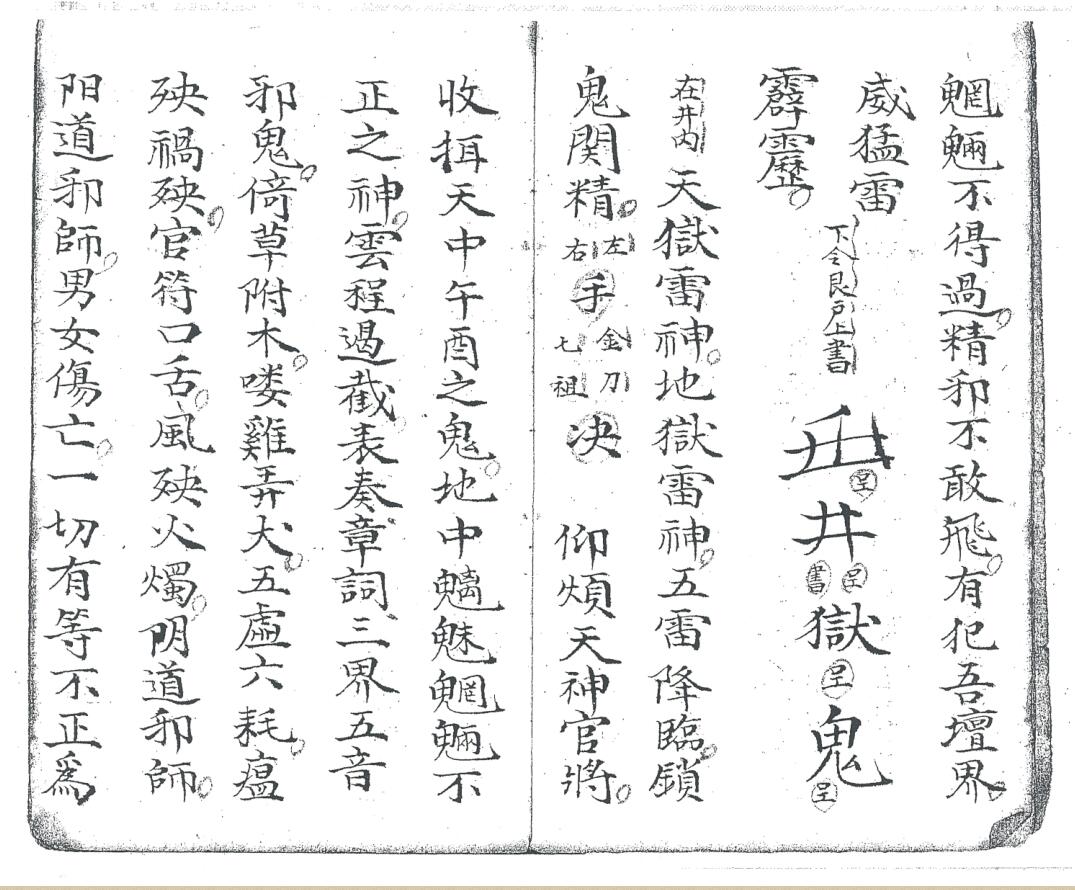 魍魎不得過精邪不敢飛有犯吾壇界
威猛雷
霹靂
下令艮戶上書
井
書
獄
鬼
在井內
天獄雷神地獄雷神五雷降臨鎖
鬼関精
左右
手
金刀
七祖
决
仰煩天神官將
收捐天中午酉之鬼地中魑魅魍魎不
正之神雲程遏截表奏章詞三界五音
邪鬼倚草附木喽雞弄犬五虛六耗瘟
殃禍殃官符口舌風殃火燭阴道邪師
阳道邪師男女傷亡一切有等不正爲